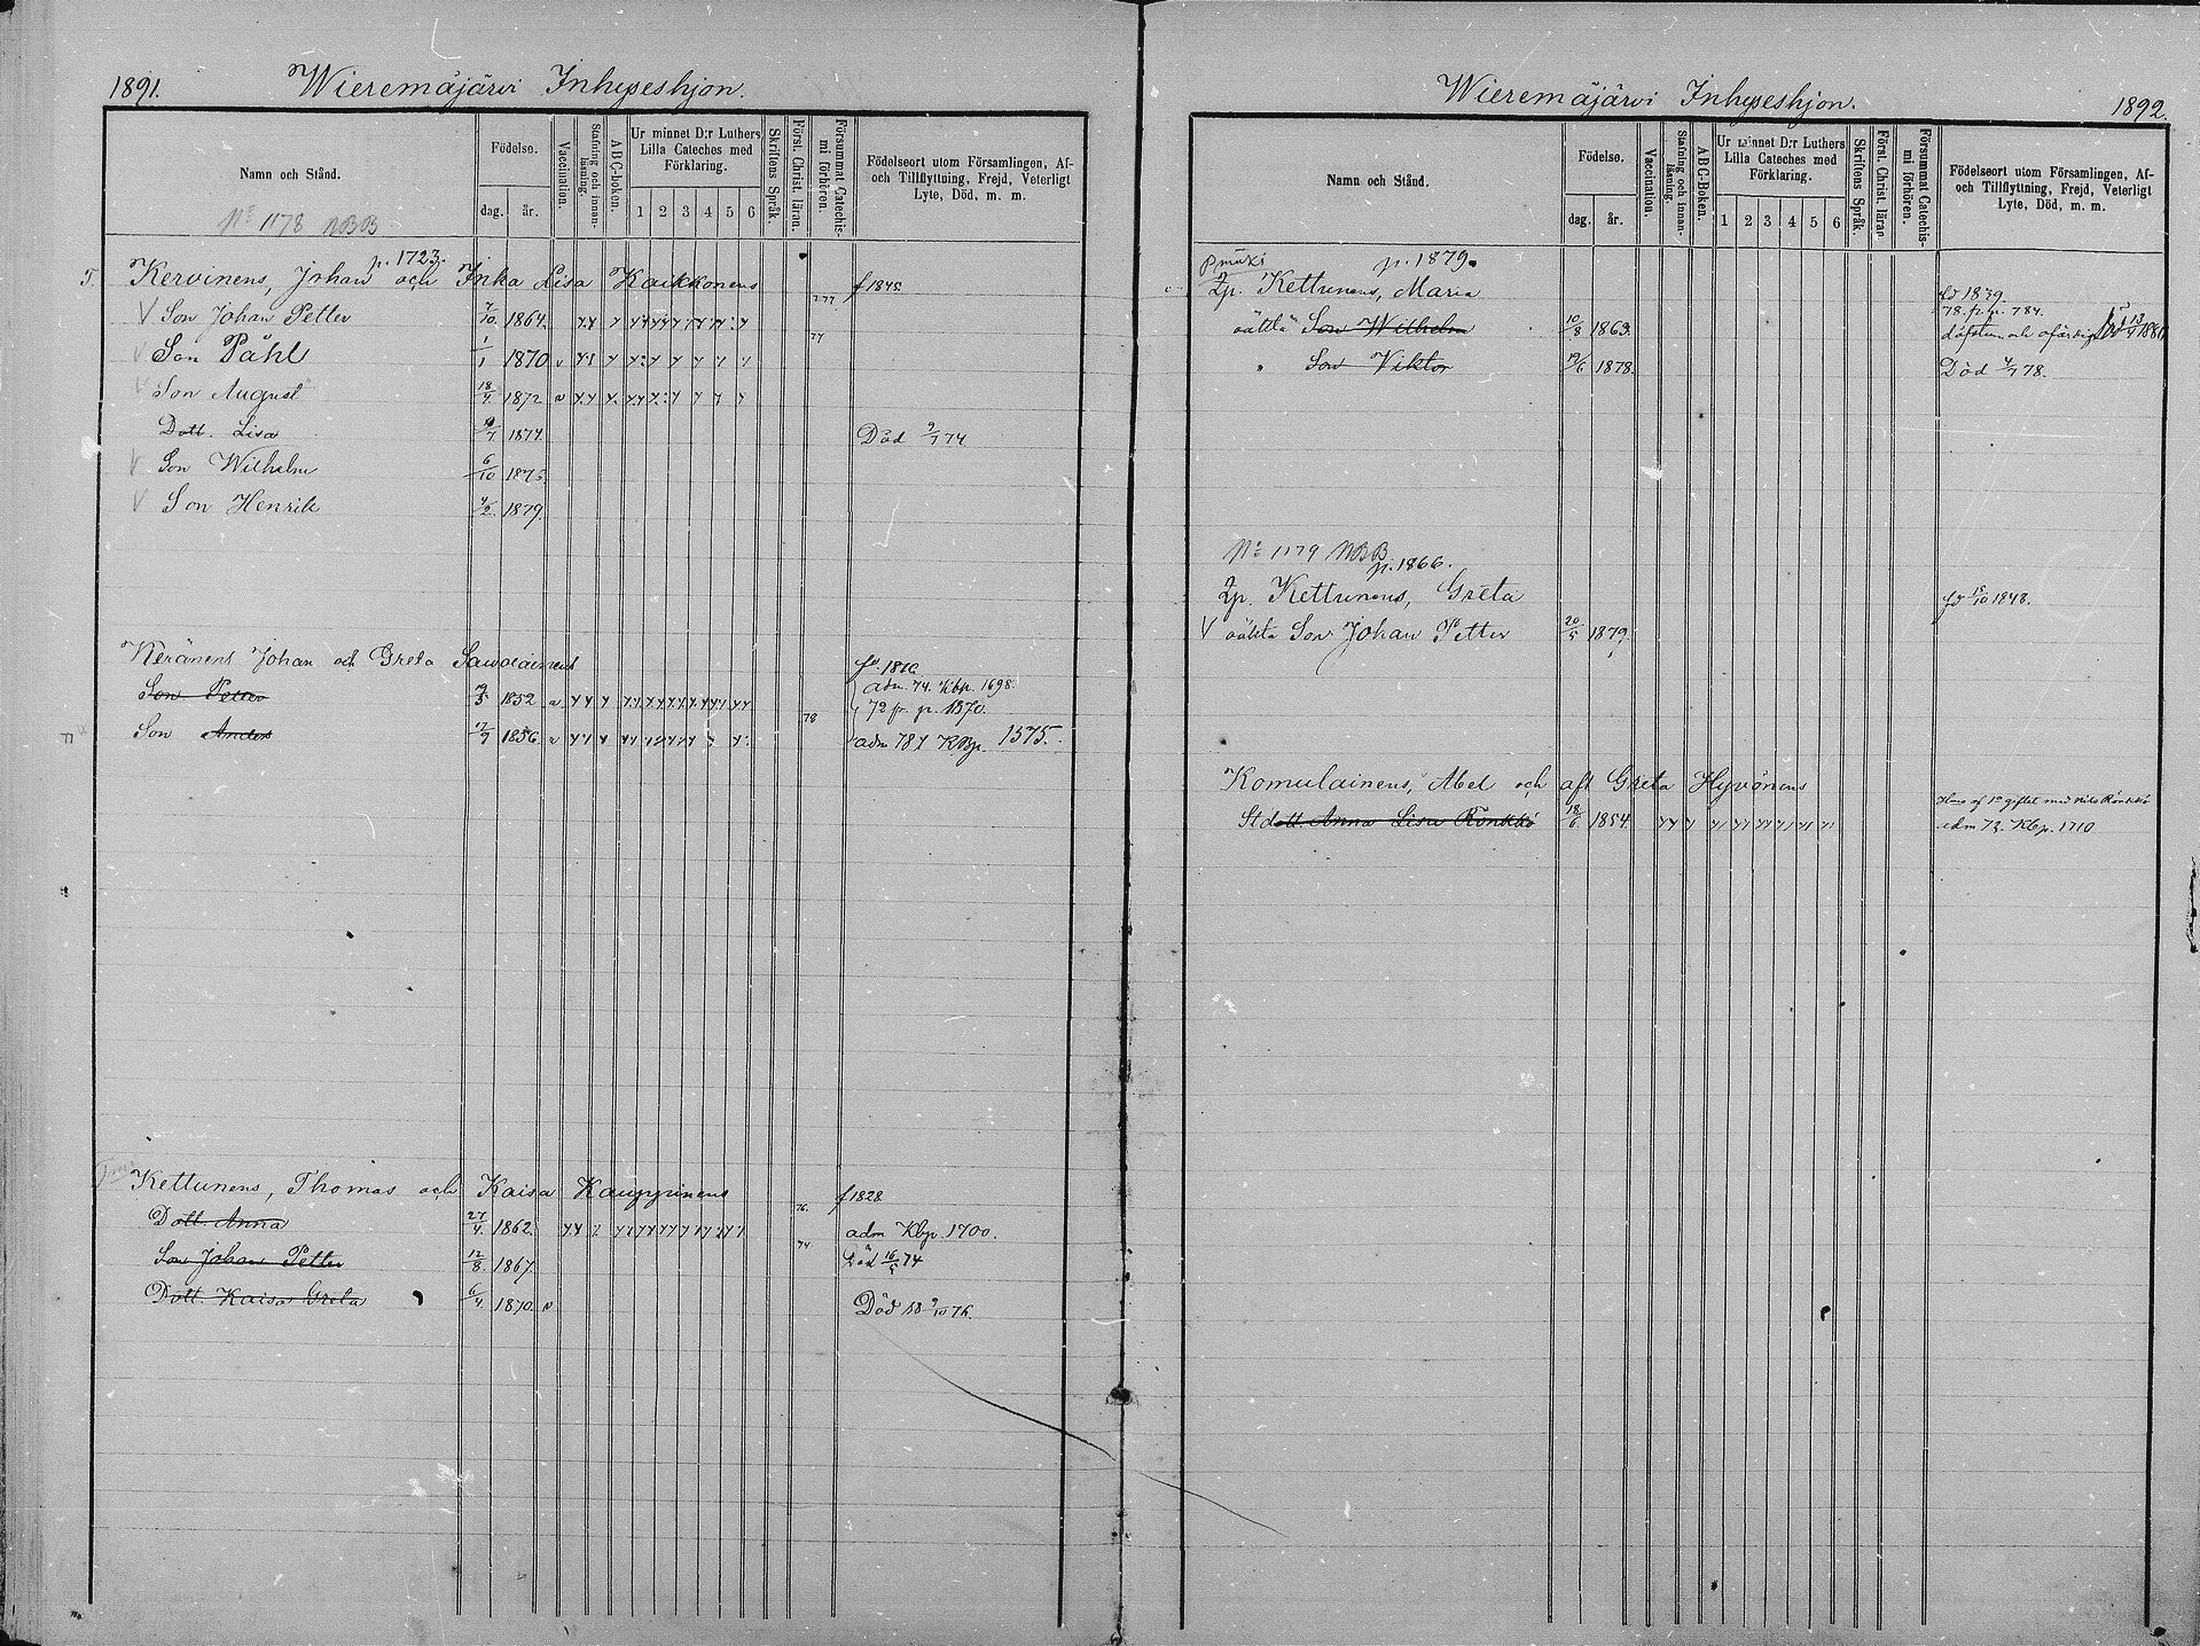 1891.
Wieremäjärvi Inhyseshjon.
Namn och Stånd.
Födelse.
dag. år.
Vaccination.
Stafning och innan-läsning.
ABC-boken.
Ur minnet D:r Luthers Lilla Cateches med Förklaring.
1 2 3 4 5 6
Skriftens Språk.
Först. Christ. läran.
Försummat Catechis-mi förhören.
Födelseort utom Församlingen, Af-och Tillflyttning, Frejd, Veterligt Lyte, Död, m. m.
No 1178 NBB
p. 1723.
T. Kervinens, Johan och Inka Lisa Kaikkonens f 1845
V Son Johan Petter 7/10 1864.
V Son Påhl 1/1 1870 v
V Son August 18/4 1872 v
Dott. Lisa 1874. Död 9/7 74
V Son Wilhelm 6/10 1875.
V Son Henrik 4/2 1879.
Keränens Johan och Greta Sawolainens
Son Petter 1852 v adm. 74. Kbp. 1698.
72 fr. p. 1370.
Son Anders 17/9 1856. v 78 adm 78 Kbp. 1575.
Kettunens, Thomas och Kaisa Kauppinens f 1828
Dott. Anna 27/4 1862. 76. adm Kbp. 1700.
Son Johan Petter 12/8 1867. 74 Död 16/5 74
Dott. Kaisa Greta 6/4 1870. v Död 9/10 76.
Wieremäjärvi Inhyseshjon.
1892.
Namn och Stånd.
Födelse.
dag. år.
Vaccination.
Stafning och innan-läsning.
ABC-Boken.
Ur minnet D:r Luthers Lilla Cateches med Förklaring.
1 2 3 4 5 6
Skriftens Språk.
Först. Christ. läran
Försummat Catechis-mi förhören.
Födelseort utom Församlingen, Af-och Tillflyttning, Frejd, Veterligt Lyte, Död, m. m.
p. 1879.
Zp. Kettunens, Maria fd 1839.
78. fr. p. 784.
oäkta Son Wilhelm 10/8 1863. döfstum och ofärdig
" Son Viktor 19/6 1878. Död 4/7 78.
No 1179 NBB
p. 1866.
Zp. Kettunens, Greta fd 15/10 1848.
V oäkta Son Johan Petter 20/5 1879.
Komulainens, Abel och aft Greta Hyvönens
Stdott. Anna Lisa Rönkkö 18/6 1854. adm 73. Kbp. 1710